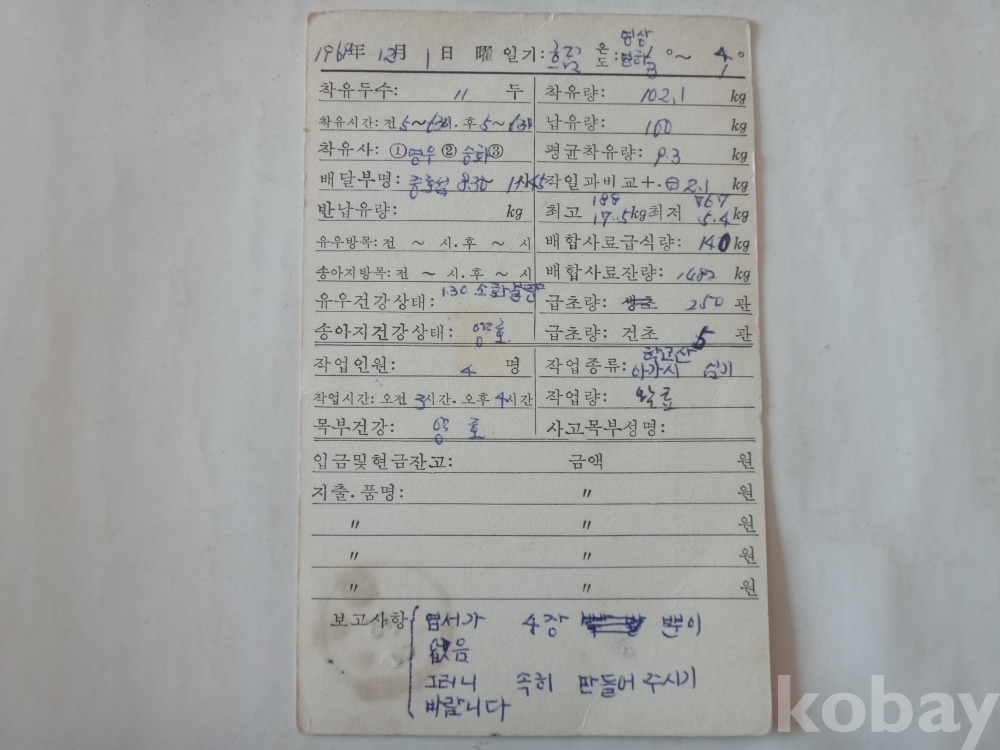 영상
1968年 12月 1日 曜 일기: 흐림 온도: 영하 8° ~ 4°
착유두수: 11 두 착유량: 102.1 kg
착유시간: 전 5~6.30시. 후 5~6.30 납유량: 100 kg
착유사: ① 영우 ② 승화 ③ 평균착유량: 9.3 kg
배달부명: 8.30~ 작일과비교+.⊖ 2.1 kg
반납유량: kg 최고 188 17.5kg 최저 767 5.4kg
유우방목: 전 ~ 시.후 ~ 시 배합사료급식량: 140 kg
송아지방목: 전 ~ 시.후 ~ 시 배합사료잔량: 1482 kg
유우건강상태: 130 소화불량 급초량: 생초 250 관
송아지건강상태: 양호 급초량: 건초 5 관
작업인원: 4 명 작업종류: 아가시 심기
작업시간: 오전 3시간. 오후 4시간 작업량: 완료
목부건강: 양호 사고목부성명:
입금및현금잔고: 금액 원
지출.품명: 〃 원
〃 〃 원
〃 〃 원
〃 〃 원
보고사항 엽서가 4장 뿐이
없음
그러니 속히 만들어 주시기
바랍니다
kobay